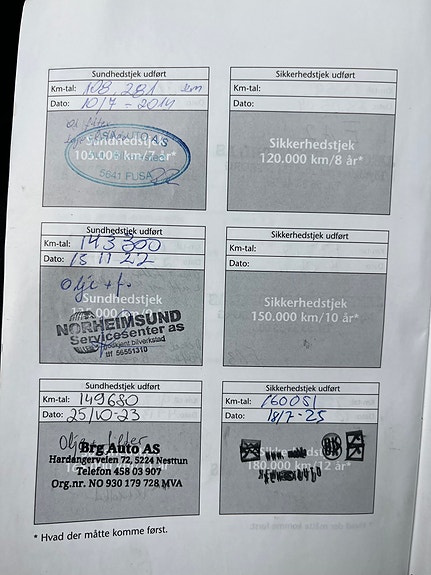 Sundhedstjek udført
Km-tal: 108.281 km
Dato: 10/7 - 2014
olj filter
Sundhedstjek
105.000 km/7 år*
5641 FUSA
Sikkerhedstjek udført
Km-tal:
Dato:
Sikkerhedstjek
120.000 km/8 år*
Sundhedstjek udført
Km-tal: 143300
Dato: 15 11 22
Olje + f.
Sundhedstjek
NORHEIMSUND
Servicesenter as
Godkjent bilverksted
tlf 56551310
Sikkerhedstjek udført
Km-tal:
Dato:
Sikkerhedstjek
150.000 km/10 år*
Sundhedstjek udført
Km-tal: 149680
Dato: 25/10-23
Olje + filter
Brg Auto AS
Hardangerveien 72, 5224 Nesttun
Telefon 458 03 907
Org.nr. NO 930 179 728 MVA
Sikkerhedstjek udført
Km-tal: 160051
Dato: 18/7-25
Sikkerhedstjek
180.000 km/12 år*
* Hvad der måtte komme først.